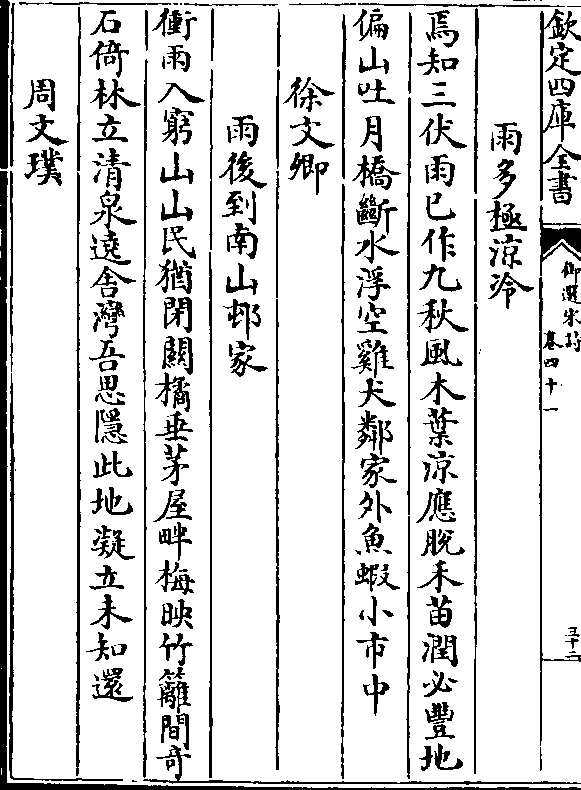 欽定四庫全書
御選宋詩
卷四十一
五十二
雨多極涼冷
焉知三伏雨已作九秋風木葉涼應脫禾苗潤必豐地
偏山吐月橋斷水浮空雞犬鄰家外魚蝦小市中
徐文卿
雨後到南山邨家
衝雨入窮山山民猶閉關橘垂茅屋畔梅映竹籬間奇
石倚林立清泉遶舍灣吾思隱此地凝立未知還
周文璞